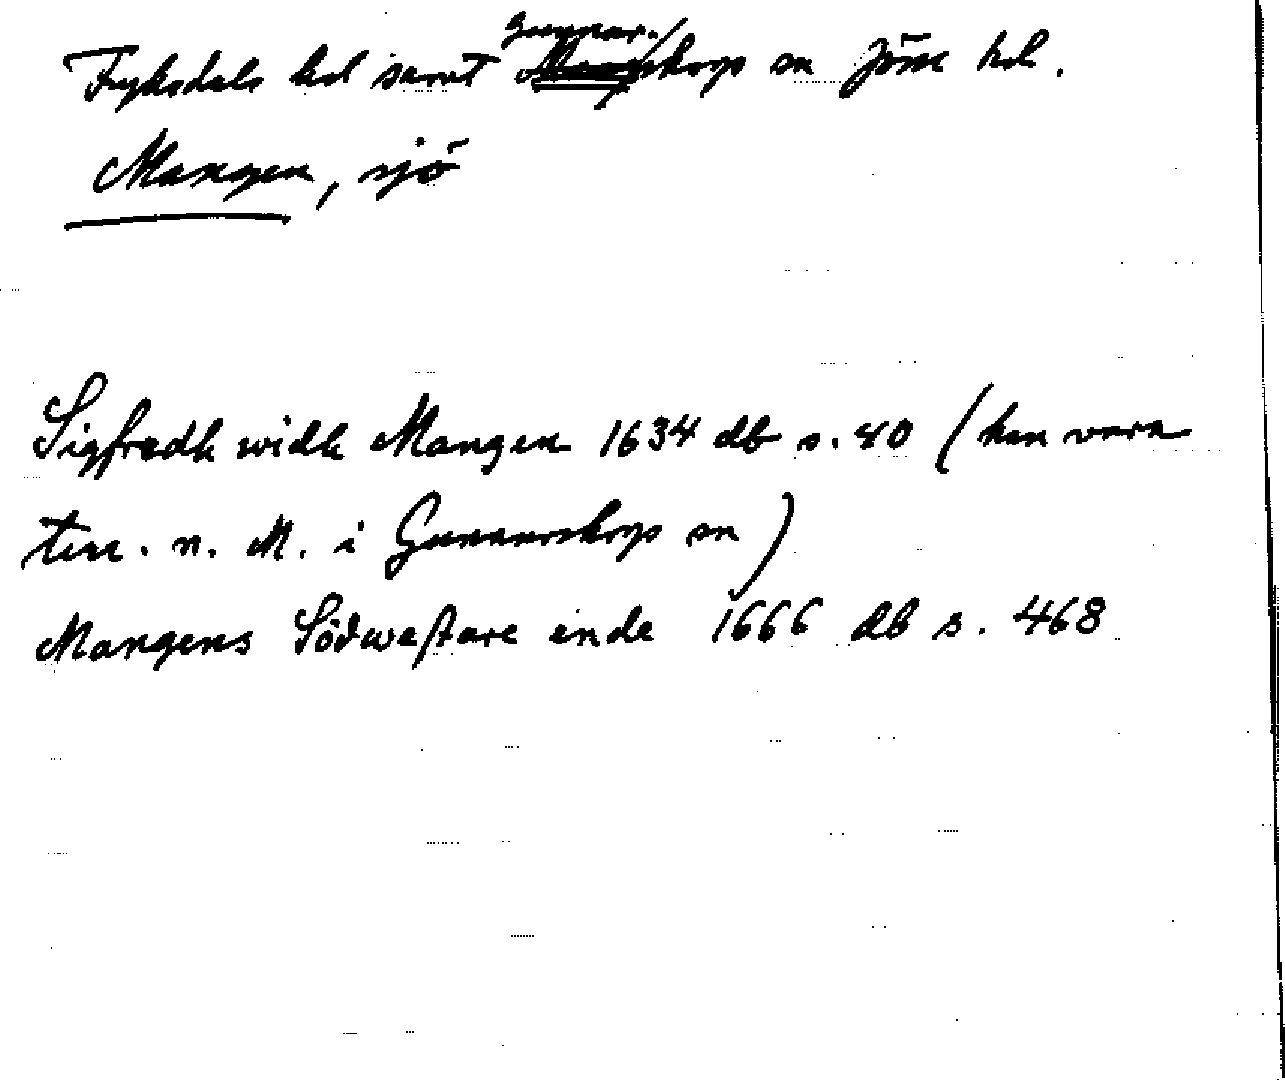 Fryksdals hd samt Gunnarskogs sn Jösse hd.
Mangen, sjö
Sigfredh widh Mangen 1634 db s. 40 (kan vara
ter. n. M. i Gunnarskogs sn)
Mangens Södwestare ende 1666 db s. 468